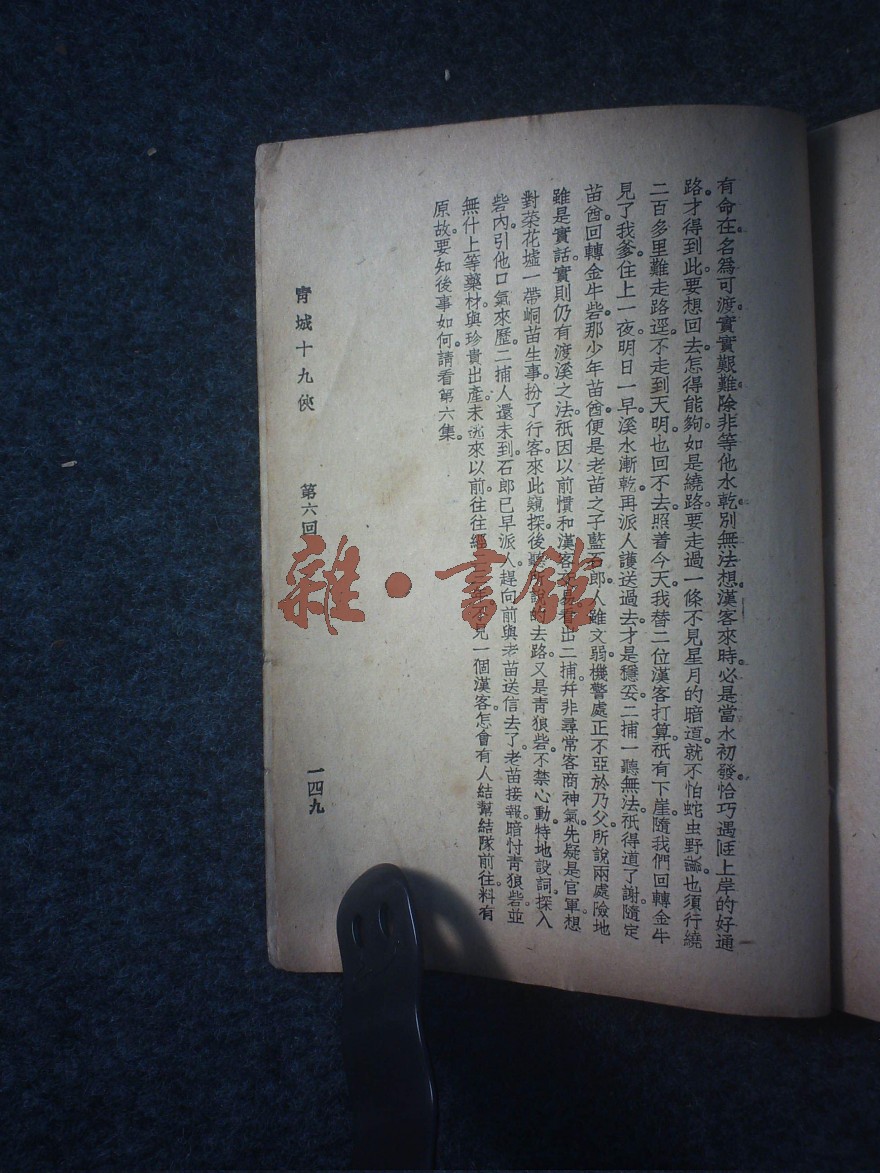 有命在。名爲可渡。實實艱難。除非等他水乾。別無法想。漢客來時。必是當水初發。恰巧遇旺上岸的好通
路。才得到此。要想回去。怎得能夠。如是繞路。要走過一條不見星月的暗道。就不怕蛇虫野。也須行繞
二百多里難走路逕。不走到天明。也回不去。照着今天。我替二位漢客打算。祇有下崖。隨我們回轉金牛
見了我爹。住上一夜。明日一早。溪水漸乾。再派人護送過去。才是穩妥。二捕一聽無法。祇得道了謝。隨定
苗酋回轉金牛砦。那少年苗酋。便是老苗之子藍石郎。人雖文弱。機警處正不亞於乃父。所說兩處險地
雖是實話。實則仍有渡溪之法。祇因以前慣和漢客交易。看出二捕幷非尋常客商神氣。先疑是官軍想
對菜花墟一帶峒苗生事。扮了行客來此窺探。後聽所說的去路。又是靑狼砦。不禁心動。特地設詞。探入
砦內。引他口氣來歷。二捕人還未到。石郎已早派人趕向前與老苗送信去了。老苗接報。暗忖靑狼砦並
無什上等藥材與珍貴出產。未來以前。往往經年不見一個漢客。怎會有人結幫結隊前往。料有
原故。要知後事如何。請看第六集。
靑城十九俠
第六回
一四九
雜·書館